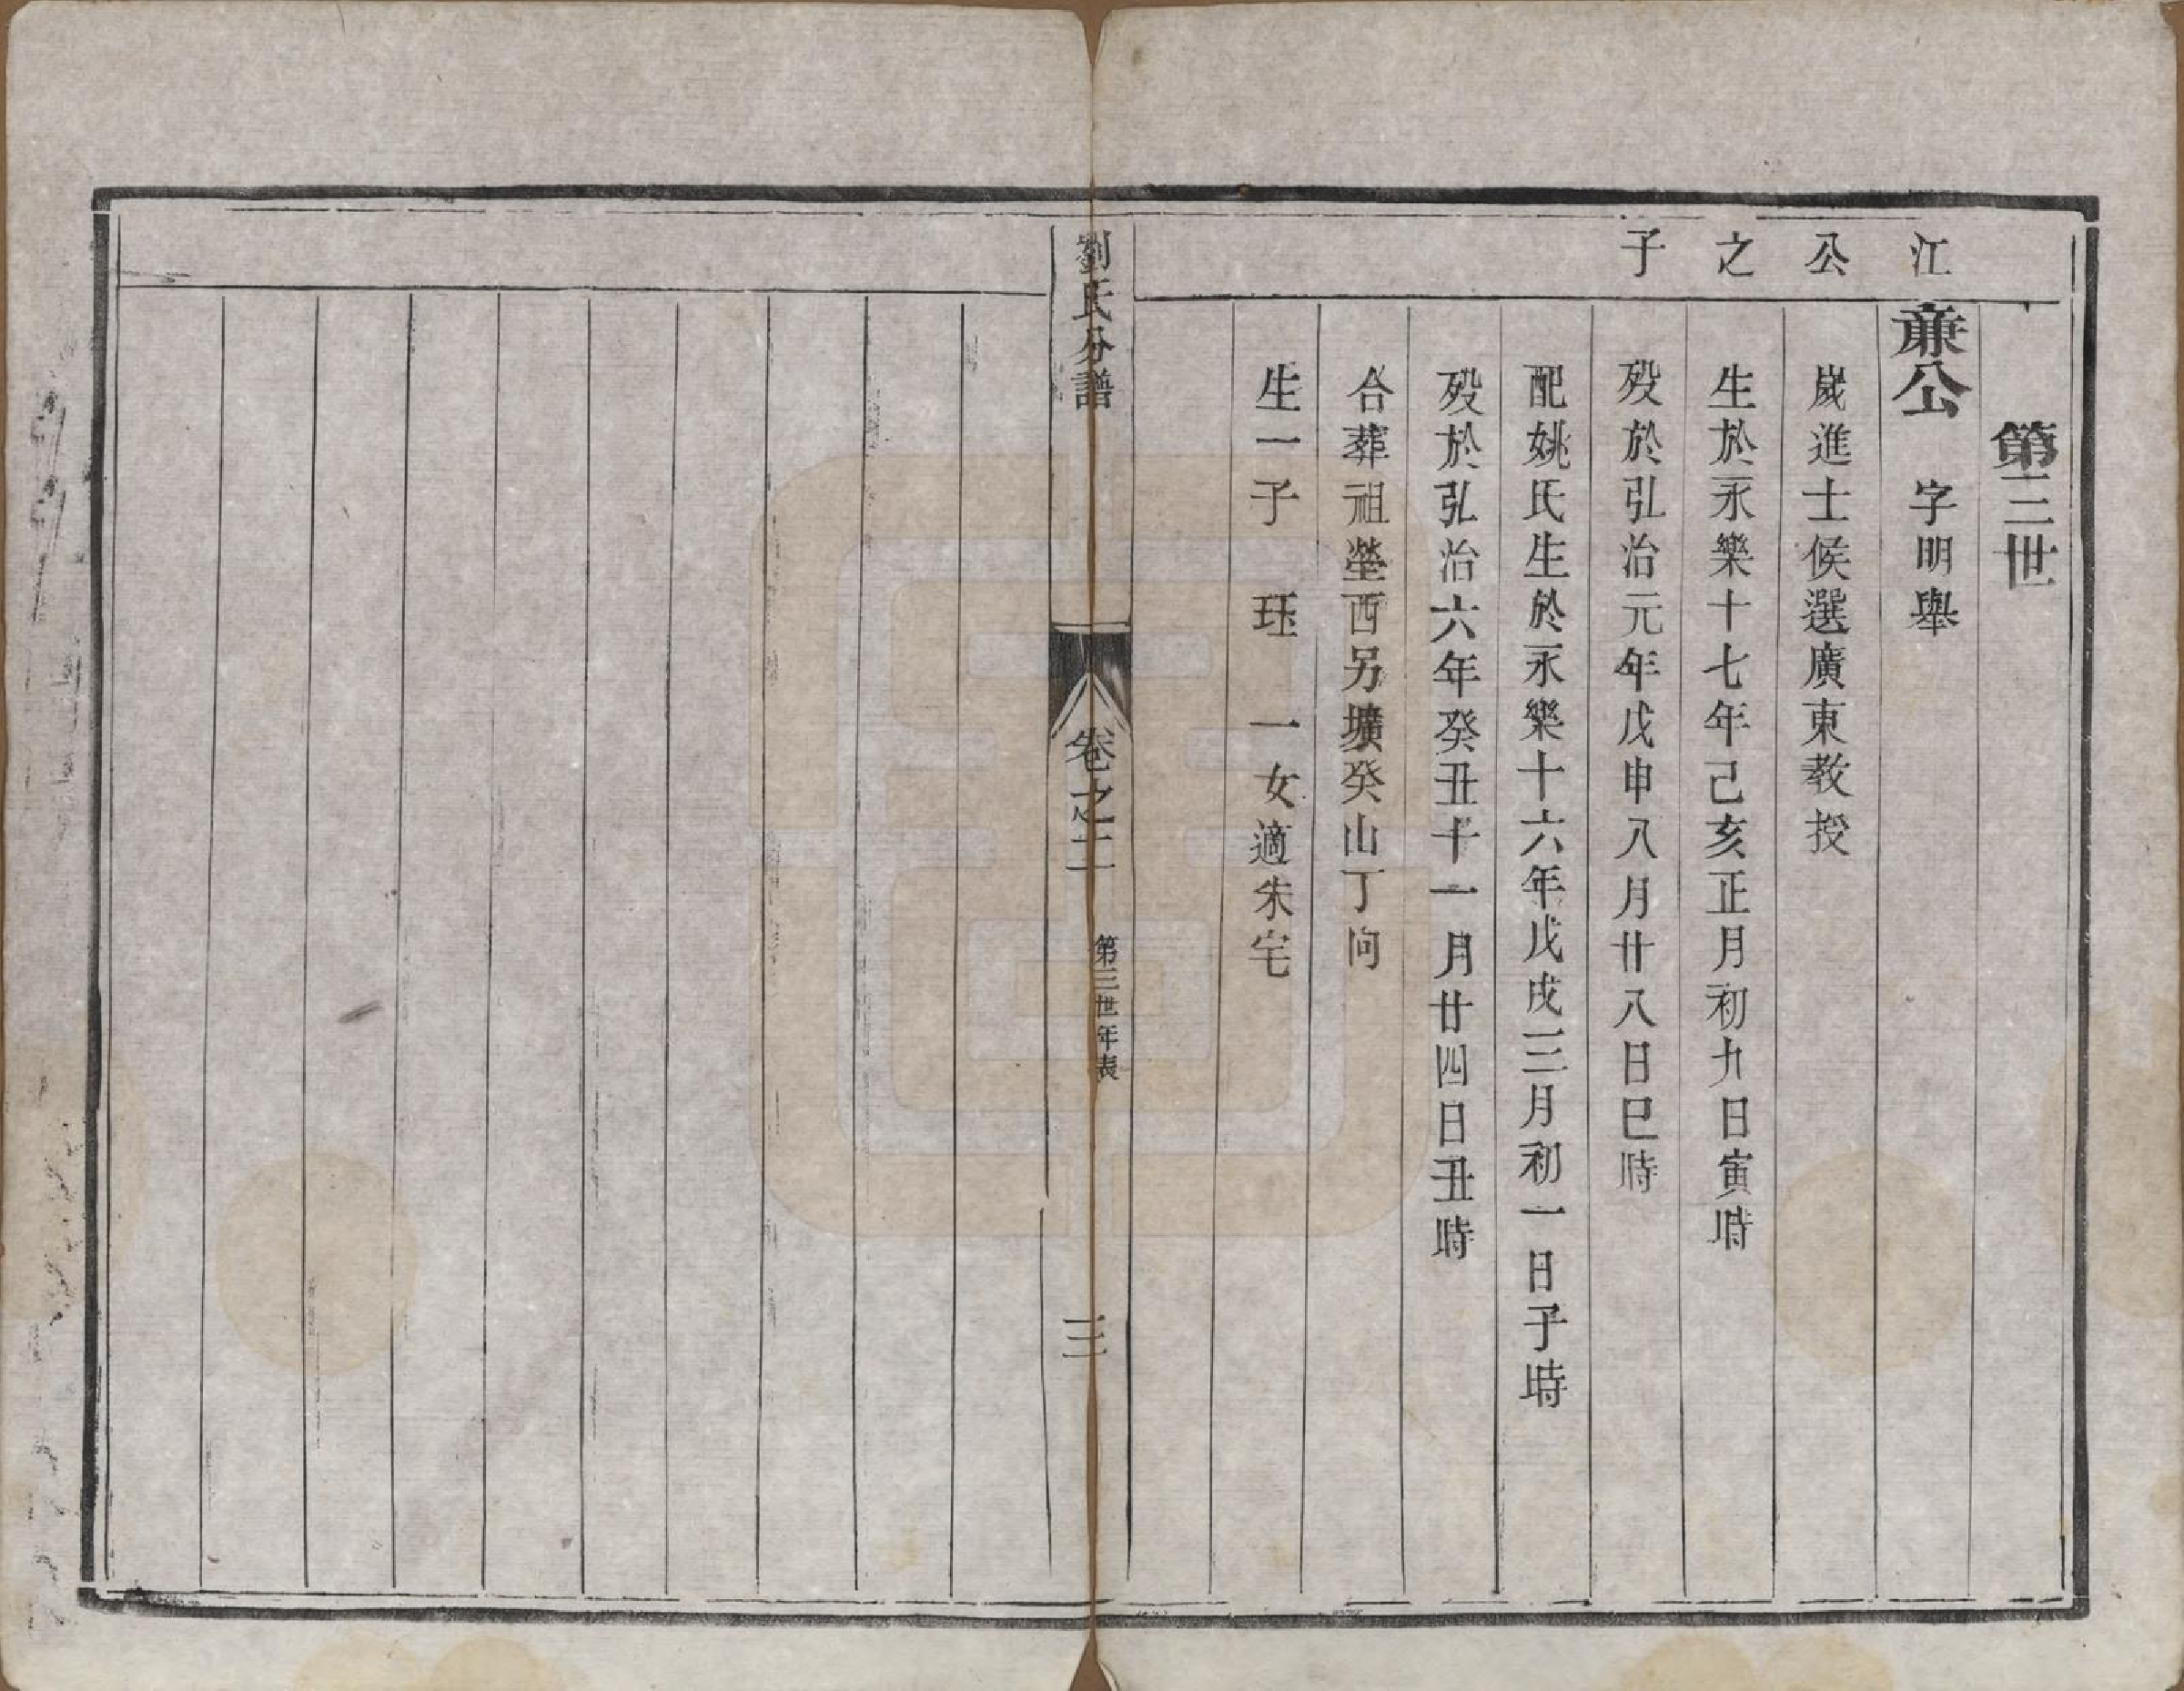 第三世
江公之子
廉公 字明舉
歲進士候選廣東教授
生於永樂十七年己亥正月初九日寅時
歿於弘治元年戊申八月廿八日巳時
配姚氏生於永樂十六年戊戌三月初一日子時
歿於弘治六年癸丑十一月廿四日丑時
合葬祖塋西另壙癸山丁向
生一子 珏 一女適朱宅
劉氏分譜 卷之二 第三世年表 三